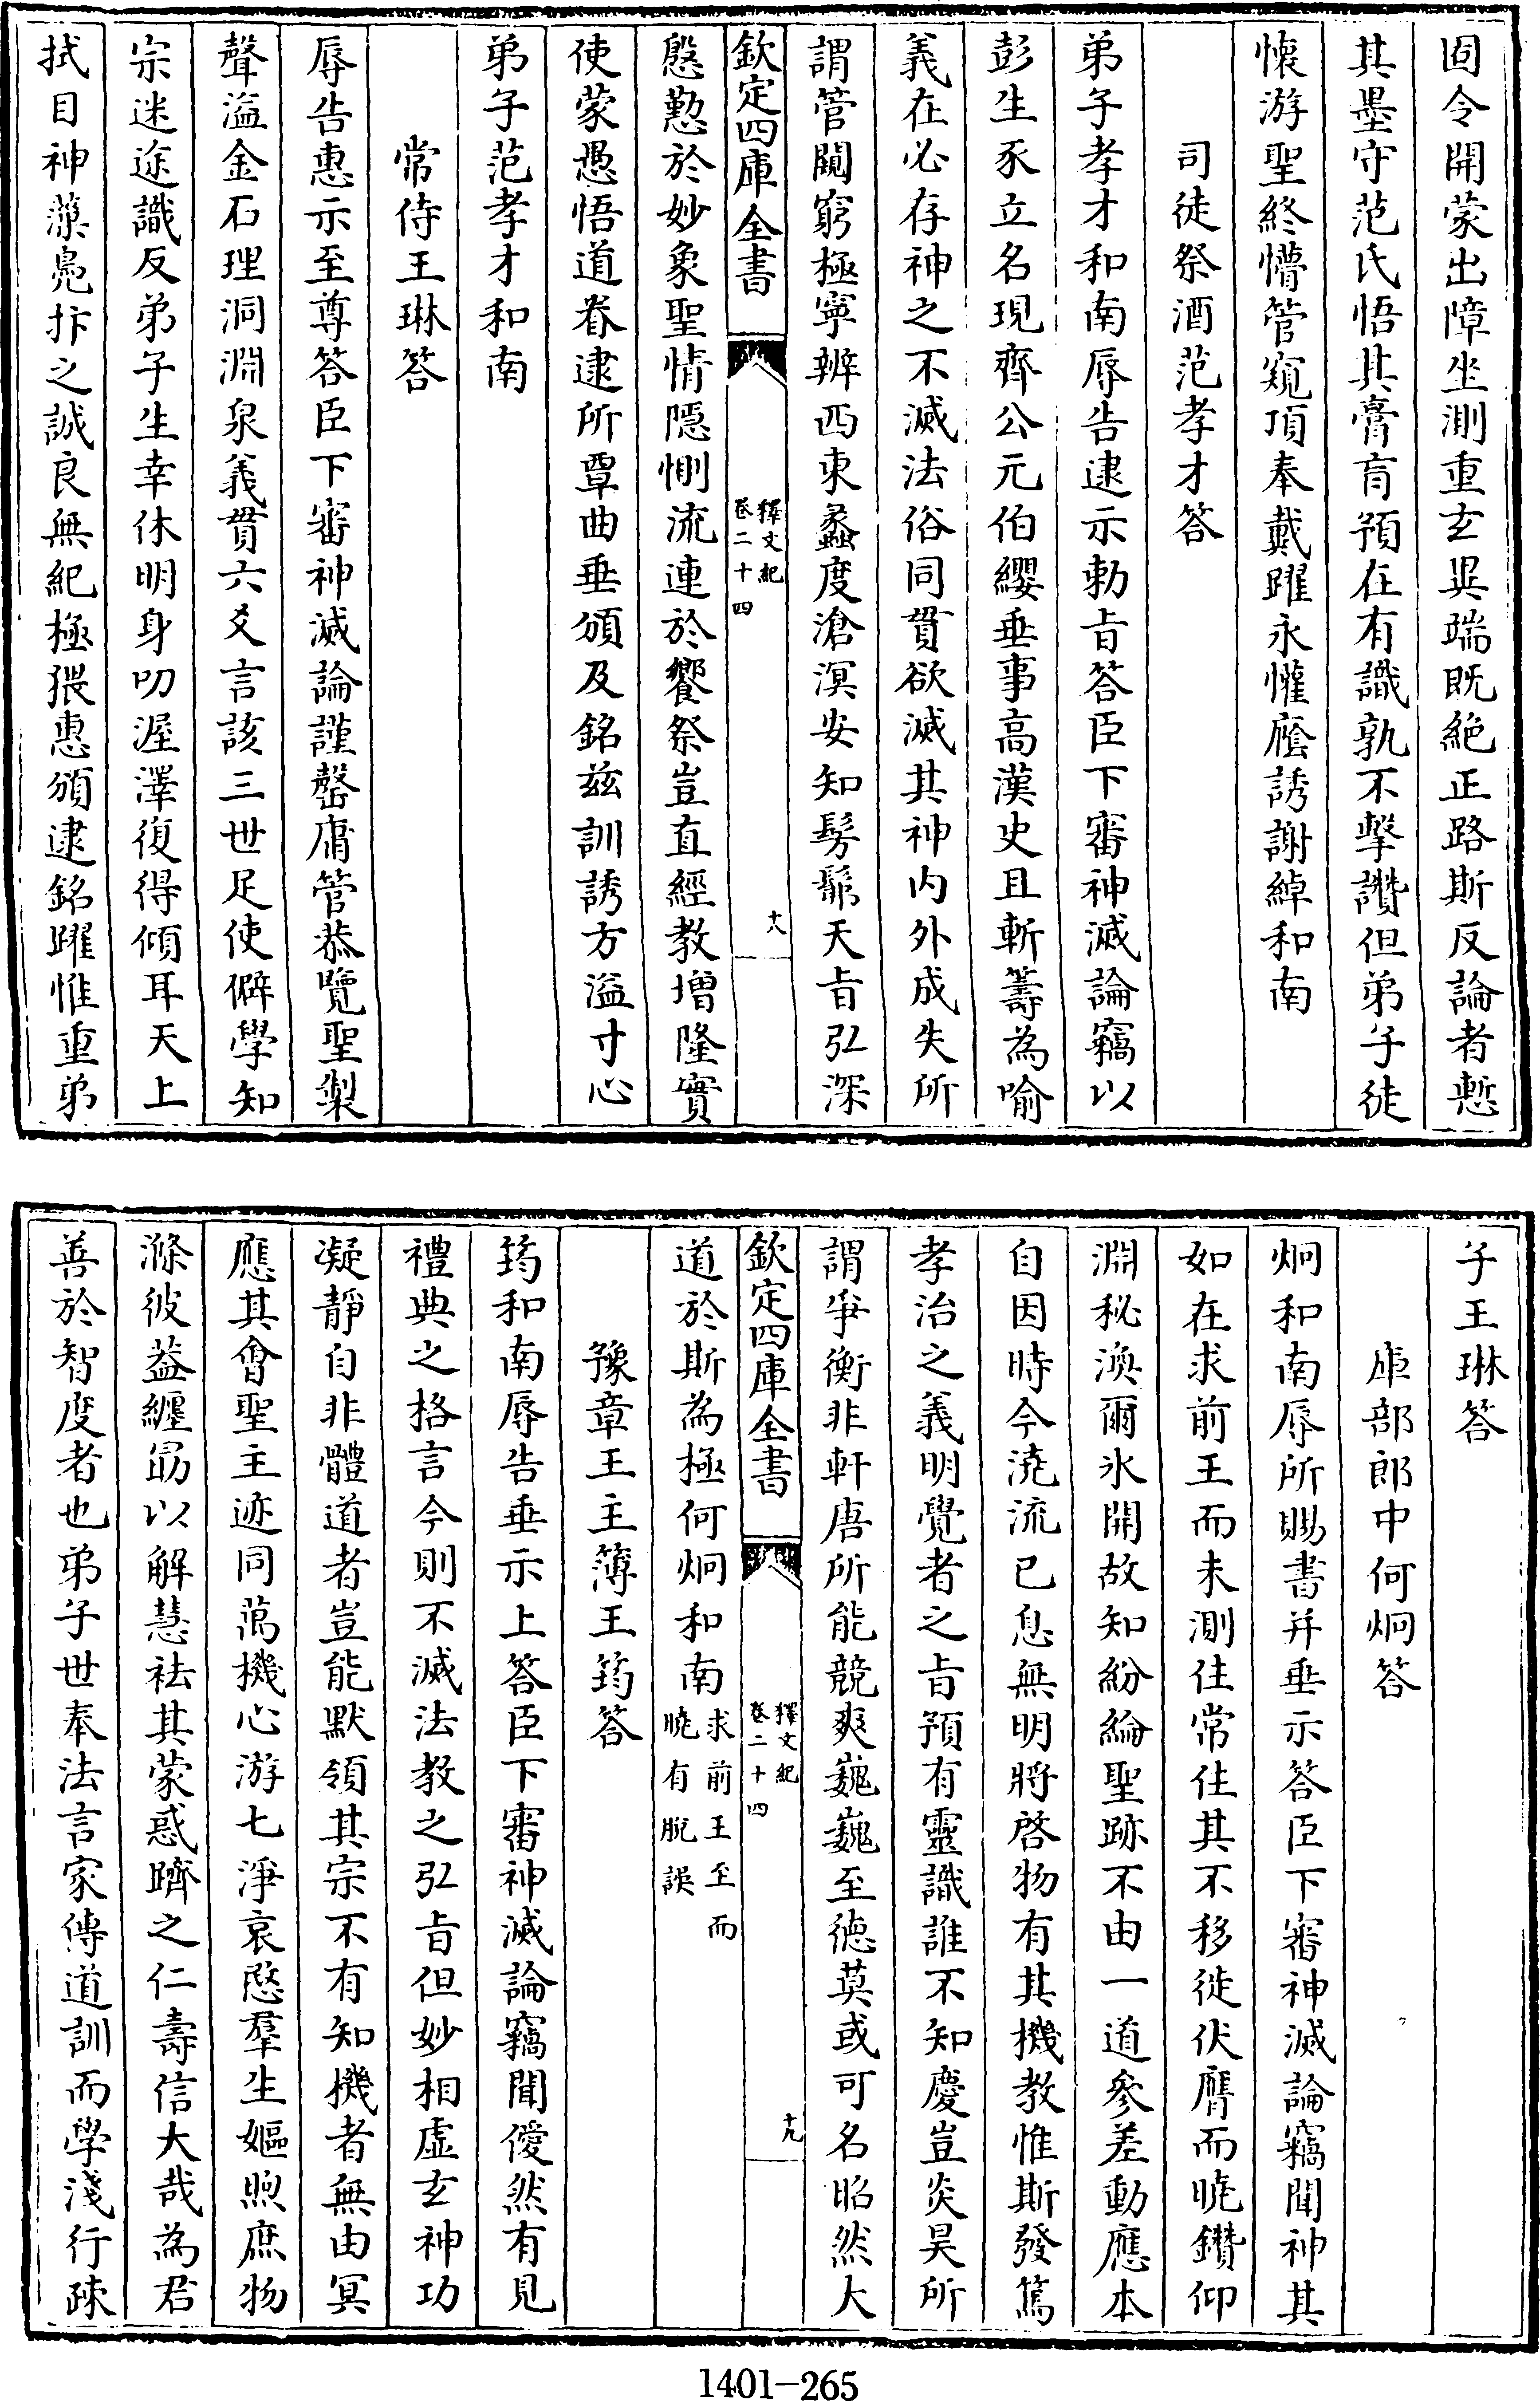 固令開蒙出障坐測重玄異端既絶正路斯反論者慙
其墨守范氏悟其膏肓預在有識孰不擊讚但弟子徒
懐游聖終懵管窺頂奉戴躍永懽廕誘謝綽和南
司徒祭酒范孝才答
弟子孝才和南辱告逮示勅旨答臣下審神滅論竊以
彭生豕立名現齊公元伯纓垂事高漢史且斬籌為喻
義在必存神之不滅法俗同貫欲滅其神内外成失所
謂管闚窮極寧辨西東蠡度滄溟安知髣髴天旨弘深
欽定四庫全書
釋文紀
卷二十四
十八
慇懃於妙象聖情隱惻流連於饗祭豈直經教增隆實
使蒙愚悟道眷逮所覃曲垂頒及銘兹訓誘方溢寸心
弟子范孝才和南
常侍王琳答
辱告惠示至尊答臣下審神滅論謹罄庸管恭覽聖製
聲溢金石理洞淵泉義貫六爻言該三世足使僻學知
宗迷途識反弟子生幸休明身叨渥澤復得傾耳天上
拭目神藻鳧抃之誠良無紀極猥惠頒逮銘躍惟重弟
子王琳答
庫部郎中何炯答
炯和南辱所賜書并垂示答臣下審神滅論竊聞神其
如在求前王而未測住常住其不移徙伏膺而曉鑽仰
淵秘渙爾氷開故知紛綸聖跡不由一道參差動應本
自因時今澆流已息無明將啓物有其機教惟斯發篤
孝治之義明覺者之旨預有靈識誰不知慶豈炎昊所
謂爭衡非軒唐所能競爽巍巍至德莫或可名昭然大
欽定四庫全書
釋文紀
卷二十四
十九
道於斯為極何炯和南求前王至而
曉有脱誤
豫章王主簿王筠答
筠和南辱告垂示上答臣下審神滅論竊聞僾然有見
禮典之格言今則不滅法教之弘旨但妙相虛玄神功
凝靜自非體道者豈能默領其宗不有知機者無由冥
應其會聖主迹同萬機心游七淨哀愍羣生嫗煦庶物
滌彼葢纒勗以解慧袪其蒙惑躋之仁壽信大哉為君
善於智度者也弟子世奉法言家傳道訓而學淺行疎
1401-265